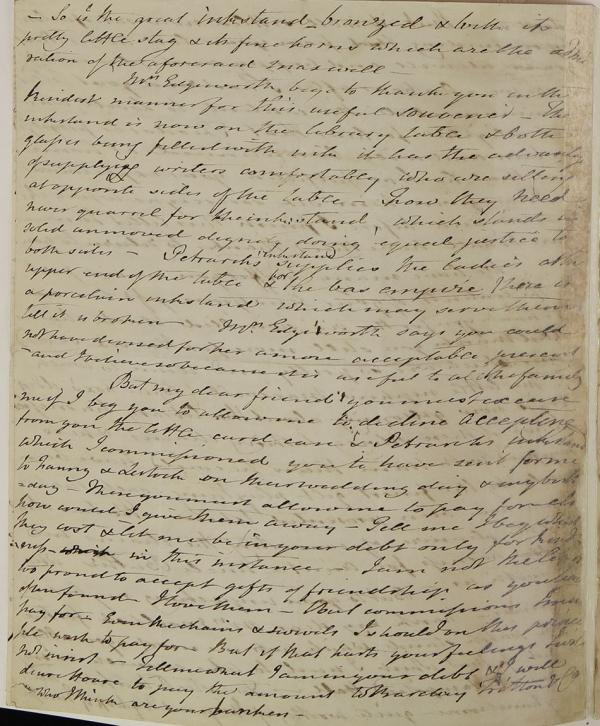 – So is the great inkstand – bronzed & with its
pretty little stag & its fine horns which are the admi
ration of the aforesaid Maxwell –
Mrs Edgeworth begs to thank you in the
kindest manner for this useful souvenir – The
inkstand is now on the library table & both
glasses being filled with ink it has the advantage
of supplying writers comfortably who are sitting
at opposite sides of the table – now they need
never quarrel for the inkstand which stands in
solid unmoved dignity doing equal justice to
both sides – Petrarch's inkstand supplies the ladies at the
upper end of the table & for the bas empire there is
a porcelain inkstand which may serve them
till it is broken – Mrs Edgeworth says you could
not have devised for her a more acceptable present
– and I believe so because it is useful to all the family
But my dear friend you must excuse
me if I beg you to allow me to decline accepting
from you the little card case & Petrarchs inkstand
which I commissioned you to have sent for me
to Fanny & Lestock on their wedding day & my birth
-day – These you must allow me to pay for else
how could I give them away – Tell me I beg what
they cost & let me be in your debt only for kind
ness – in this instance – I am not the least
too proud to accept gifts of friendship as you have
often found – I love them – But commissions I must
pay for – Even the chains & swivels I should on this
wish to pay for – But if that hurts your feelings I will
not insist – Tell me what I am in your debt & I will
desire to pay the amount to Barclay Tritton & Co
– who I think are your bankers –